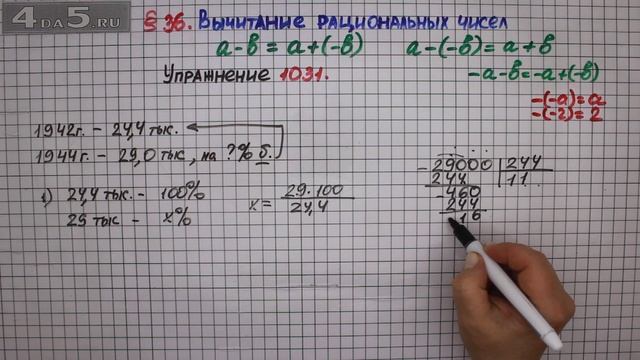 4DA5.RU
§ 36. Вычитание рациональных чисел
a-b = a+(-b) a-(-b) = a+b
Упражнение 1031. -a-b=-a+(-b)
-(-a)=a
-(-2)=2
1942г. - 24,4 тыс.
1944г. - 29,0 тыс, на ?% б.
1) 24,4 тыс. - 100%
25 тыс - x%
x = 29·100
24,4
29000 244
244 11
- 460
244
- 16